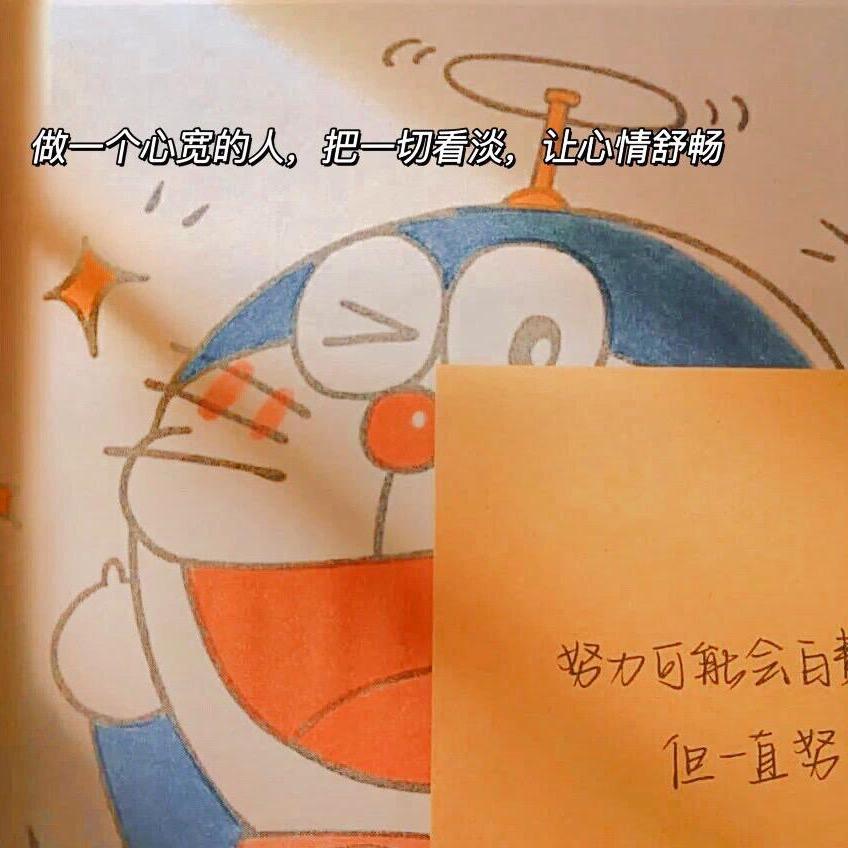 做一个心宽的人，把一切看淡，让心情舒畅
努力可能会白費
但一直努